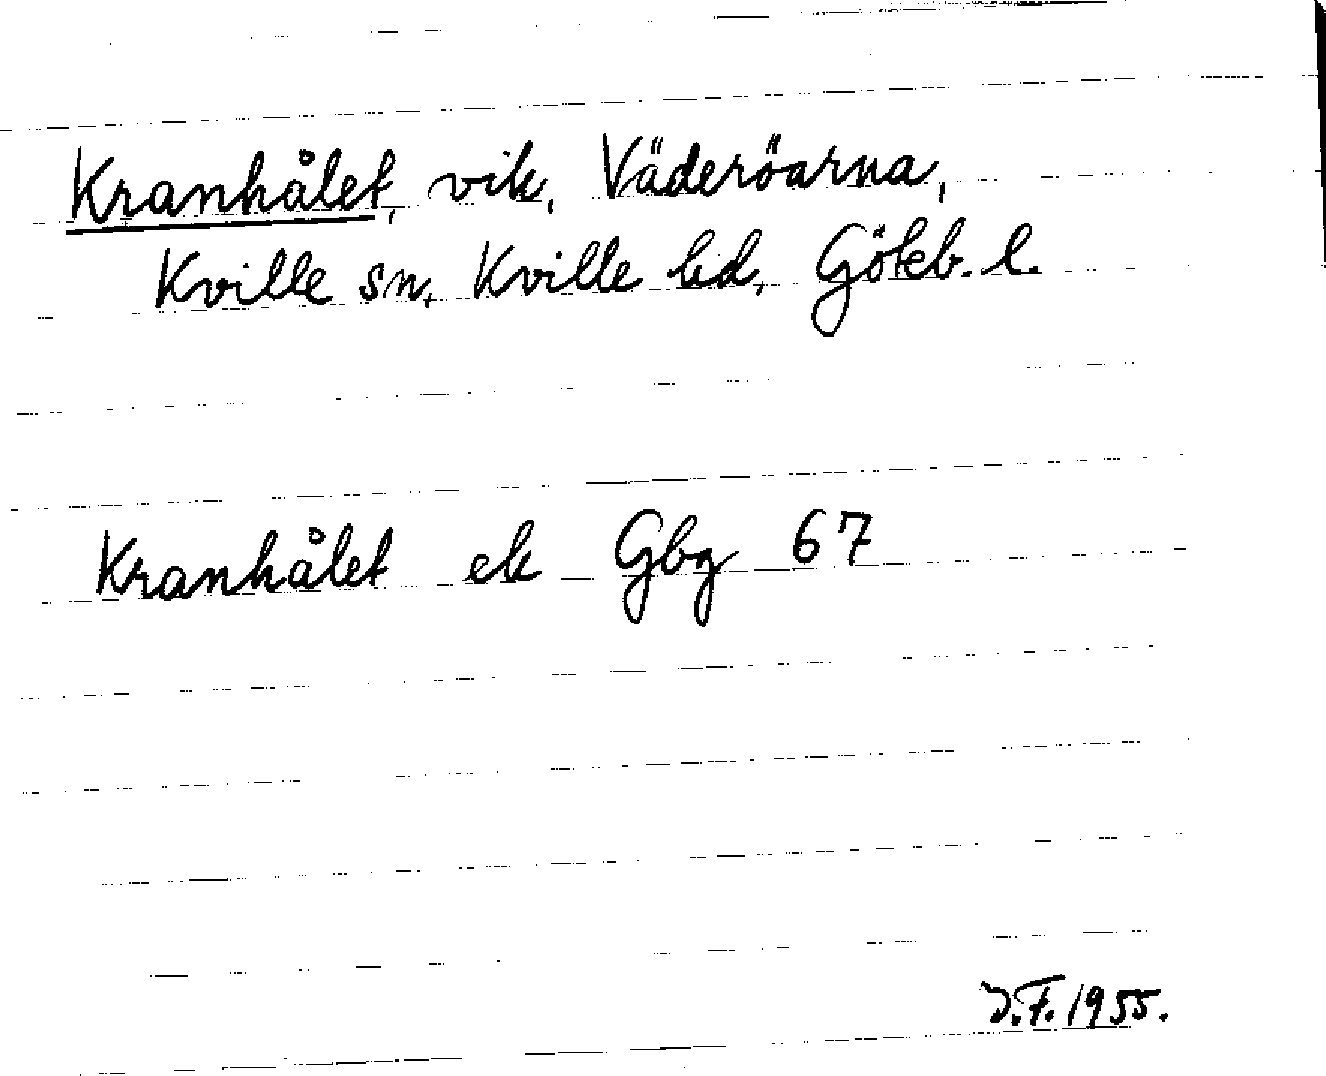 Kranhålet, vik, Väderöarna,
Kville sn, Kville hd, Göteb. l.
Kranhålet ek Gbg 67
J.F. 1955.